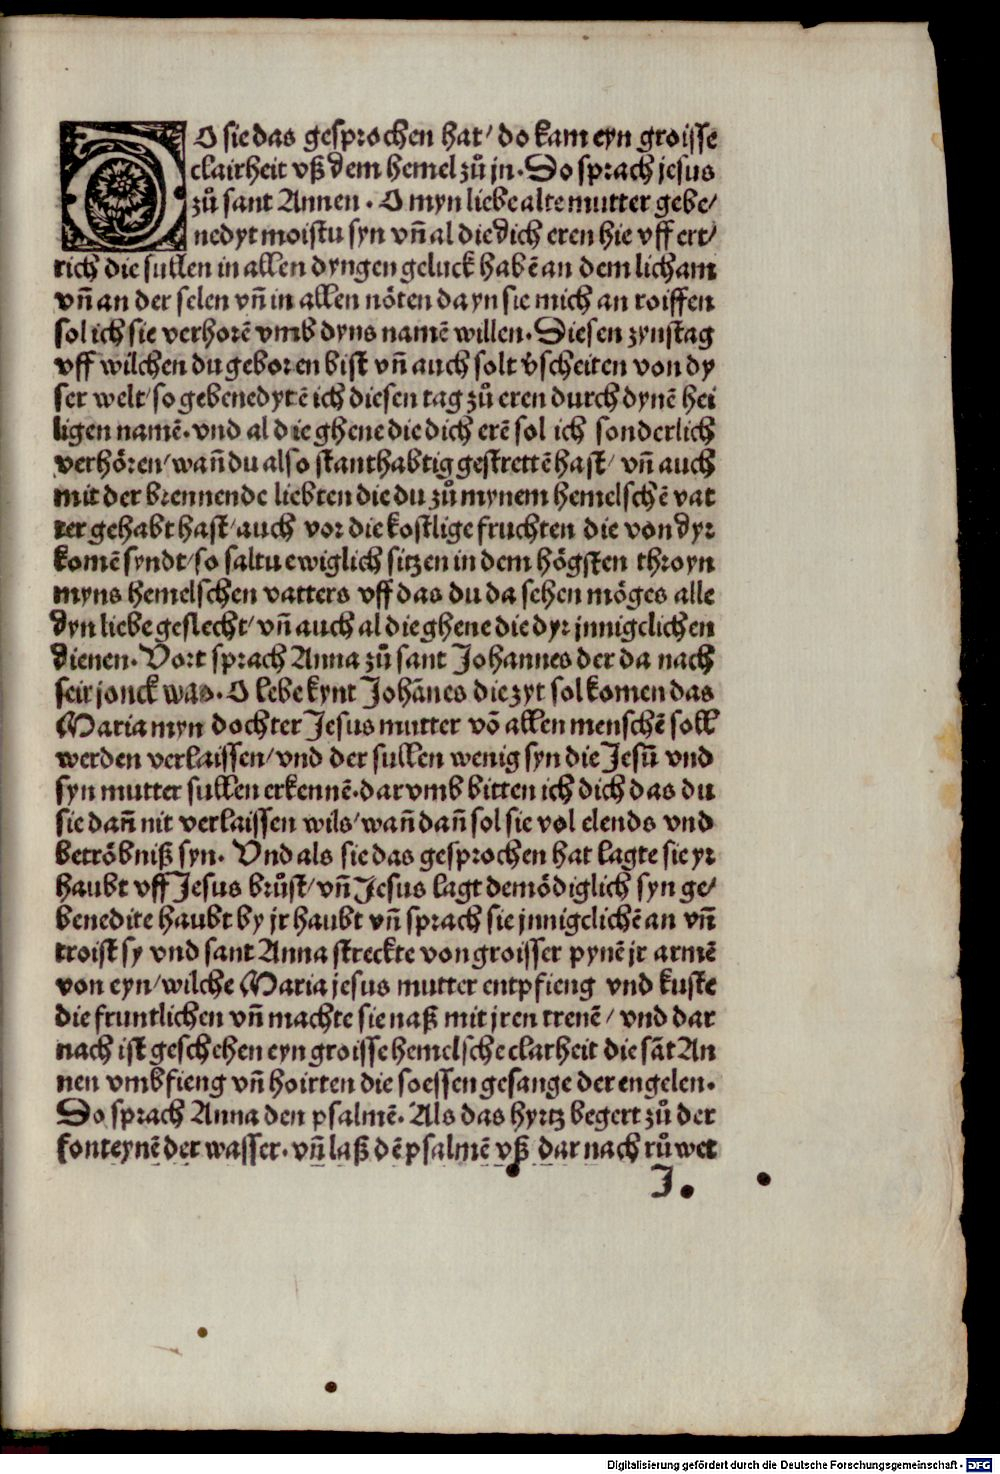 DO sie das gesprochen hat/ do kam eyn groisse
clairheit vß dem hemel zů jn. Do sprach jesus
zů sant Annen. O myn liebe alte mutter gebe/
nedyt moistu syn vn̄ al die dich eren hie vff ert/
rich die sullen in allen dyngen geluck habē an dem licham
vn̄ an der selen vn̄ in allen nöten da yn sie mich an roiffen
sol ich sie verhorē vmb dyns namē willen. Diesen zynstag
vff wilchen du geboren bist vn̄ auch solt v̄scheiten von dy
ser welt/ so gebenedytē ich diesen tag zů eren durch dynē hei
ligen namē. vnd al die ghene die dich erē sol ich sonderlich
verhören/ wan̄ du also stanthabtig gestrettē hast/ vn̄ auch
mit der brennende liebten die du zů mynem hemelschē vat
ter gehabt hast/ auch vor die kostlige fruchten die von dyr
komē syndt/ so saltu ewiglich sitzen in dem högsten throyn
myns hemelschen vatters vff das du da sehen möges alle
dyn liebe geslecht/ vn̄ auch al die ghene die dyr jnnigclichen
dienen. Vort sprach Anna zů sant Johannes der da nach
seir jonck was. O lebe kynt Johānes die zyt sol komen das
Maria myn dochter Jesus mutter vō allen menschē soll
werden verlaissen/ vnd der sullen wenig syn die Jesū vnd
syn mutter sullen erkennē. dar vmb bitten ich dich das du
sie dan̄ nit verlaissen wils/ wan̄ dan̄ sol sie vol elends vnd
betröbniß syn. Vnd als sie das gesprochen hat lagte sie yr
haubt vff Jesus brůst/ vn̄ Jesus lagt demödiglich syn ge/
benedite haubt by jr haubt vn̄ sprach sie jnnigclichē an vn̄
troist sy vnd sant Anna streckte von groisser pynē jr armē
von eyn/ wilche Maria jesus mutter entpfieng vnd kuste
die fruntlichen vn̄ machte sie naß mit jren trenē/ vnd dar
nach ist geschehen eyn groisse hemelsche clarheit die sāt An
nen vmbfieng vn̄ hoirten die soessen gesange der engelen.
Do sprach Anna den psalmē. Als das hyrtz begert zů der
fonteynē der wasser. vn̄ laß dē psalmē vß dar nach růwet
J.
Digitalisierung gefördert durch die Deutsche Forschungsgemeinschaft - DFG